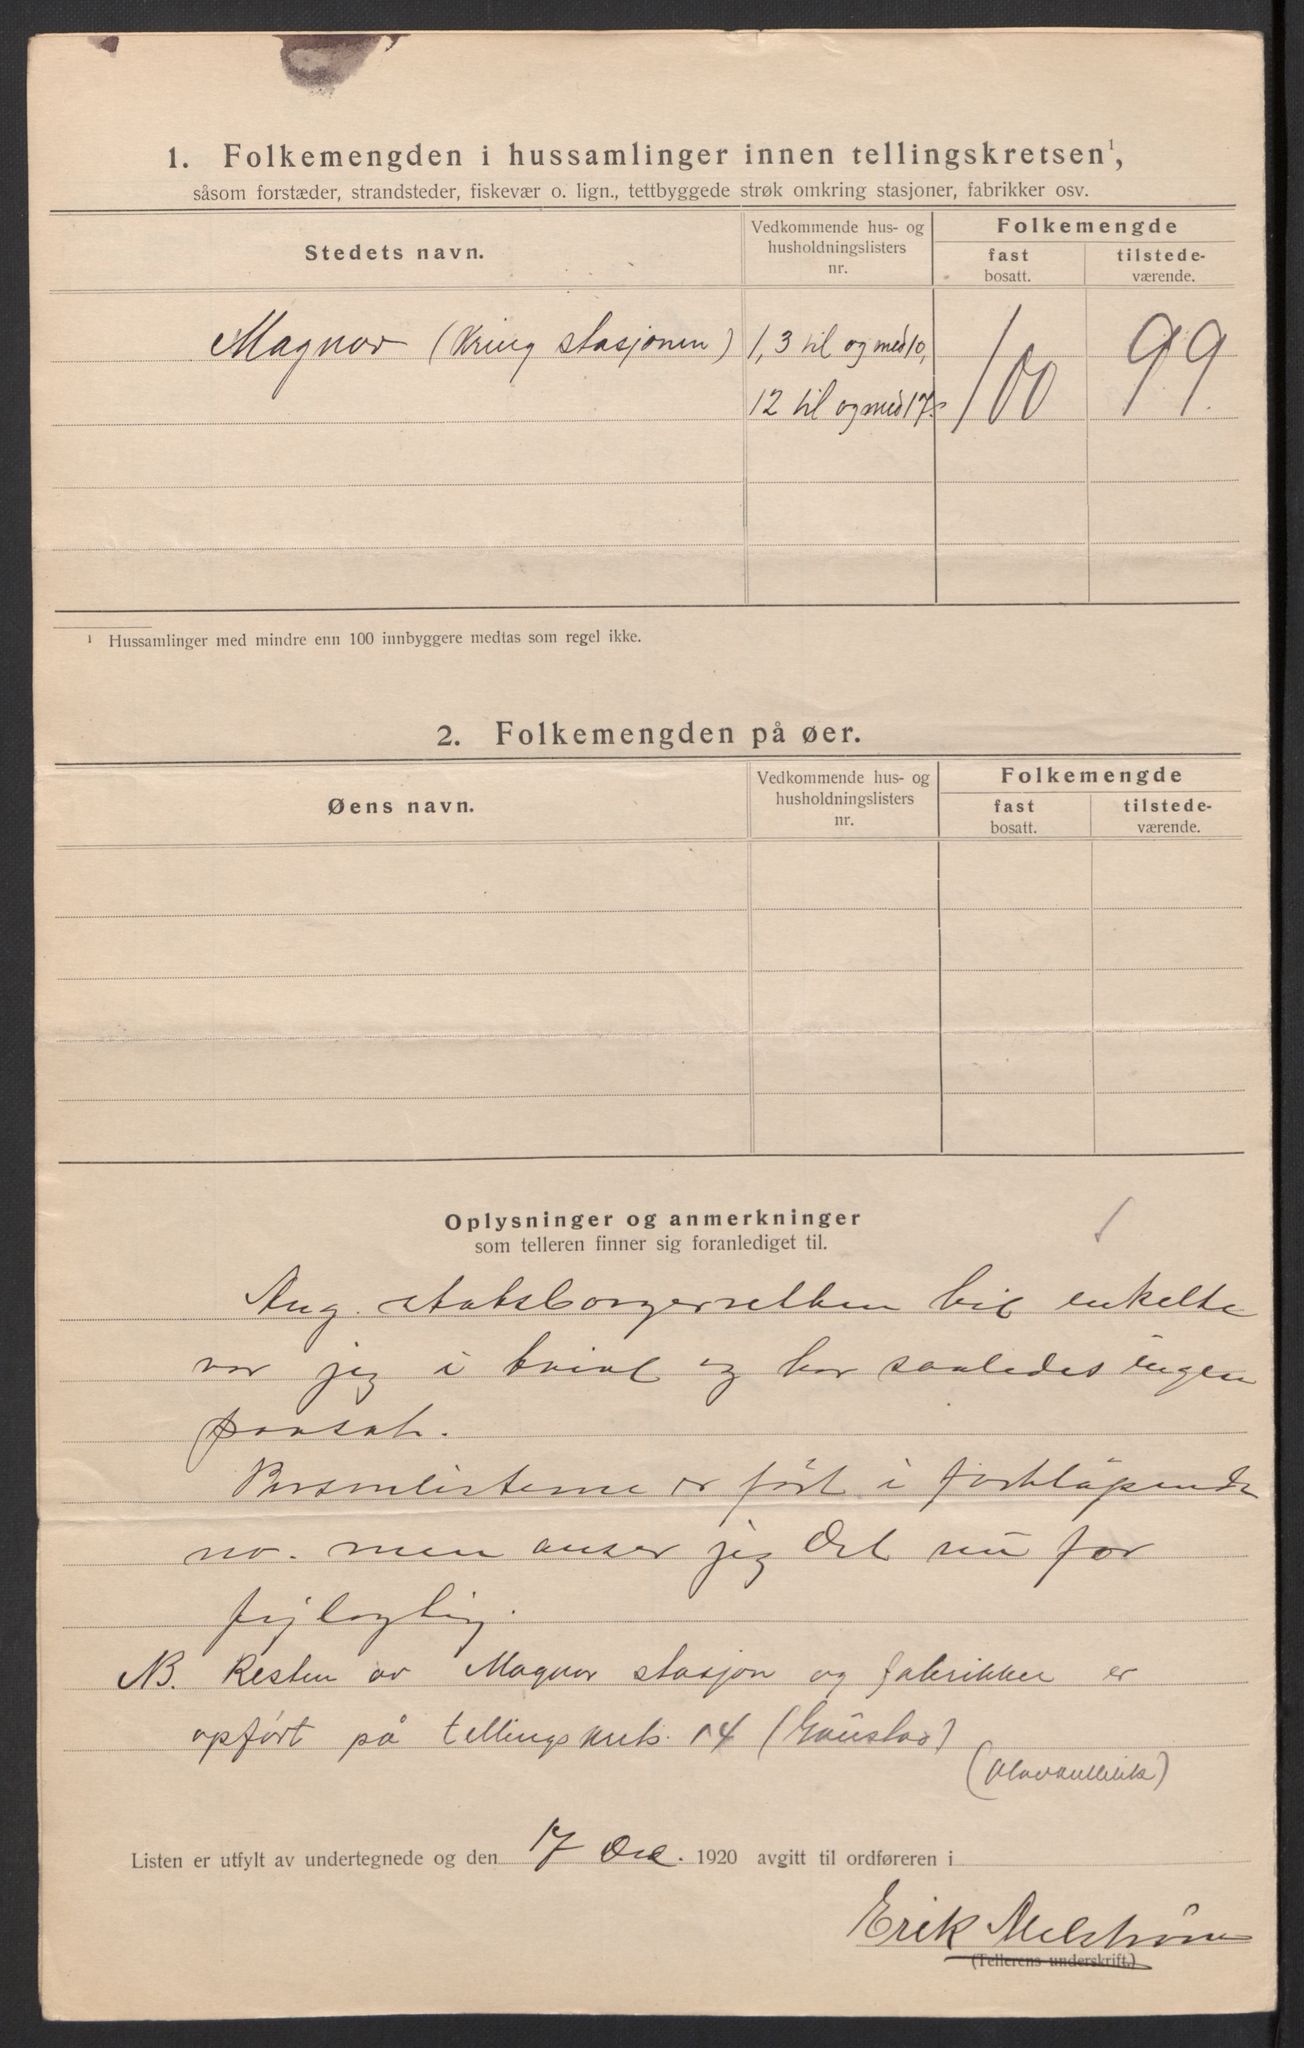 1. Folkemengden i hussamlinger innen tellingskretsen¹,
såsom forstæder, strandsteder, fiskevær o. lign., tettbyggede strøk omkring stasjoner, fabrikker osv.
Stedets navn.
Vedkommende hus- og
husholdningslisters
nr.
Folkemengde
fast
bosatt.
tilstede-
værende.
Magnor (kring stasjonen)
1, 3 til og med 10,
12 til og med 17.
100
99
¹ Hussamlinger med mindre enn 100 innbyggere medtas som regel ikke.
2. Folkemengden på øer.
Øens navn.
Vedkommende hus- og
husholdningslisters
nr.
Folkemengde
fast
bosatt.
tilstede-
værende.
Oplysninger og anmerkninger
som telleren finner sig foranlediget til.
Ang. statsborgerretten til enkelte
var jeg i tvivl og har saaledes ingen
paasat.
Personlisterne er ført i fortløpende
no. men anser jeg det nu for
fejlagtig.
NB. Resten av Magnor stasjon og fabrikker er
opført på tellingskrets 14 (Gaustad)
Listen er utfylt av undertegnede og den 17 Des. 1920 avgitt til ordføreren i
Erik
(Tellerens underskrift.)